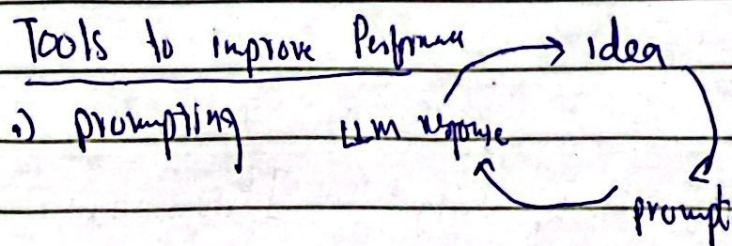 Tools to improve Performance
idea
.) prompting
LLM response
prompt